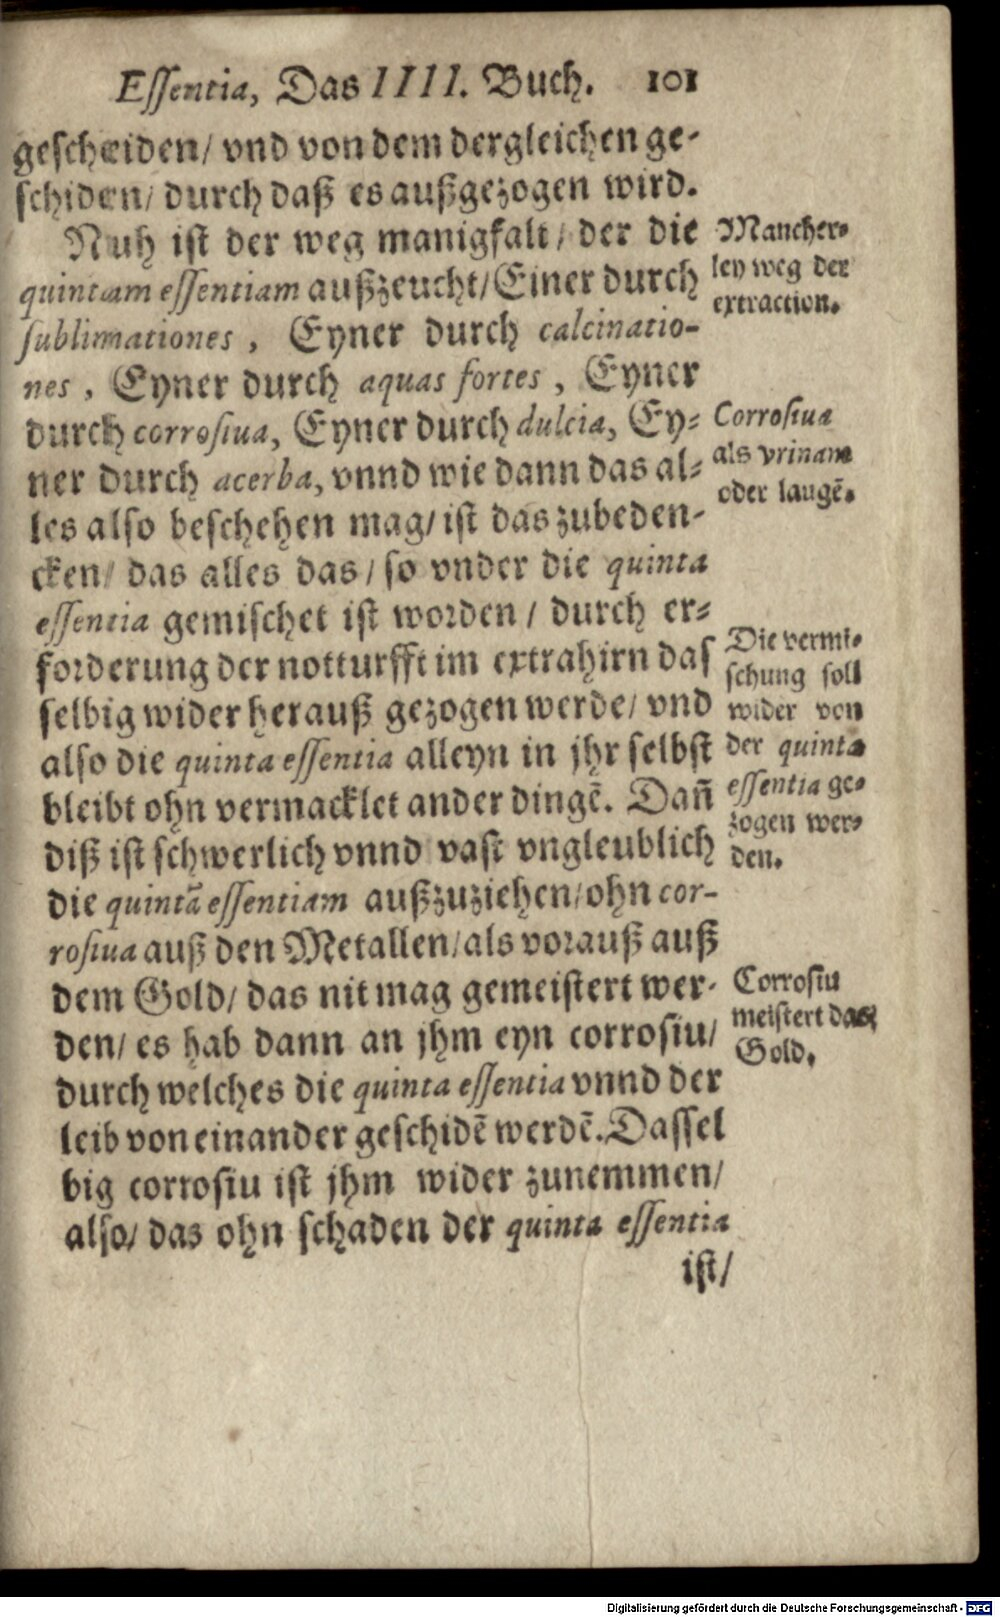 Essentia, Das IIII. Buch. 101
gescheiden/ vnd von dem dergleichen ge-
schiden/ durch daß es außgezogen wird.
Nuh ist der weg manigfalt/ der die
quintam essentiam außzeucht/ Einer durch
sublimationes, Eyner durch calcinatio-
nes, Eyner durch aquas fortes, Eyner
durch corrosiua, Eyner durch dulcia, Ey-
ner durch acerba, vnnd wie dann das al-
les also beschehen mag/ ist das zubeden-
cken/ das alles das/ so vnder die quinta
essentia gemischet ist worden/ durch er-
forderung der notturfft im extrahirn das
selbig wider herauß gezogen werde/ vnd
also die quinta essentia alleyn in jhr selbst
bleibt ohn vermacklet ander dingē. Dañ
diß ist schwerlich vnnd vast vngleublich
die quintā essentiam außzuziehen/ ohn cor-
rosiua auß den Metallen/ als vorauß auß
dem Gold/ das nit mag gemeistert wer-
den/ es hab dann an jhm eyn corrosiu/
durch welches die quinta essentia vnnd der
leib von einander geschidē werdē. Dassel
big corrosiu ist jhm wider zunemmen/
also/ das ohn schaden der quinta essentia
ist/
Mancher-
ley weg der
extraction.
Corrosiua
als vrinam
oder laugē.
Die vermi-
schung soll
wider von
der quinta
essentia ge-
zogen wer-
den.
Corrosiu
meistert das
Gold.
Digitalisierung gefördert durch die Deutsche Forschungsgemeinschaft - DFG